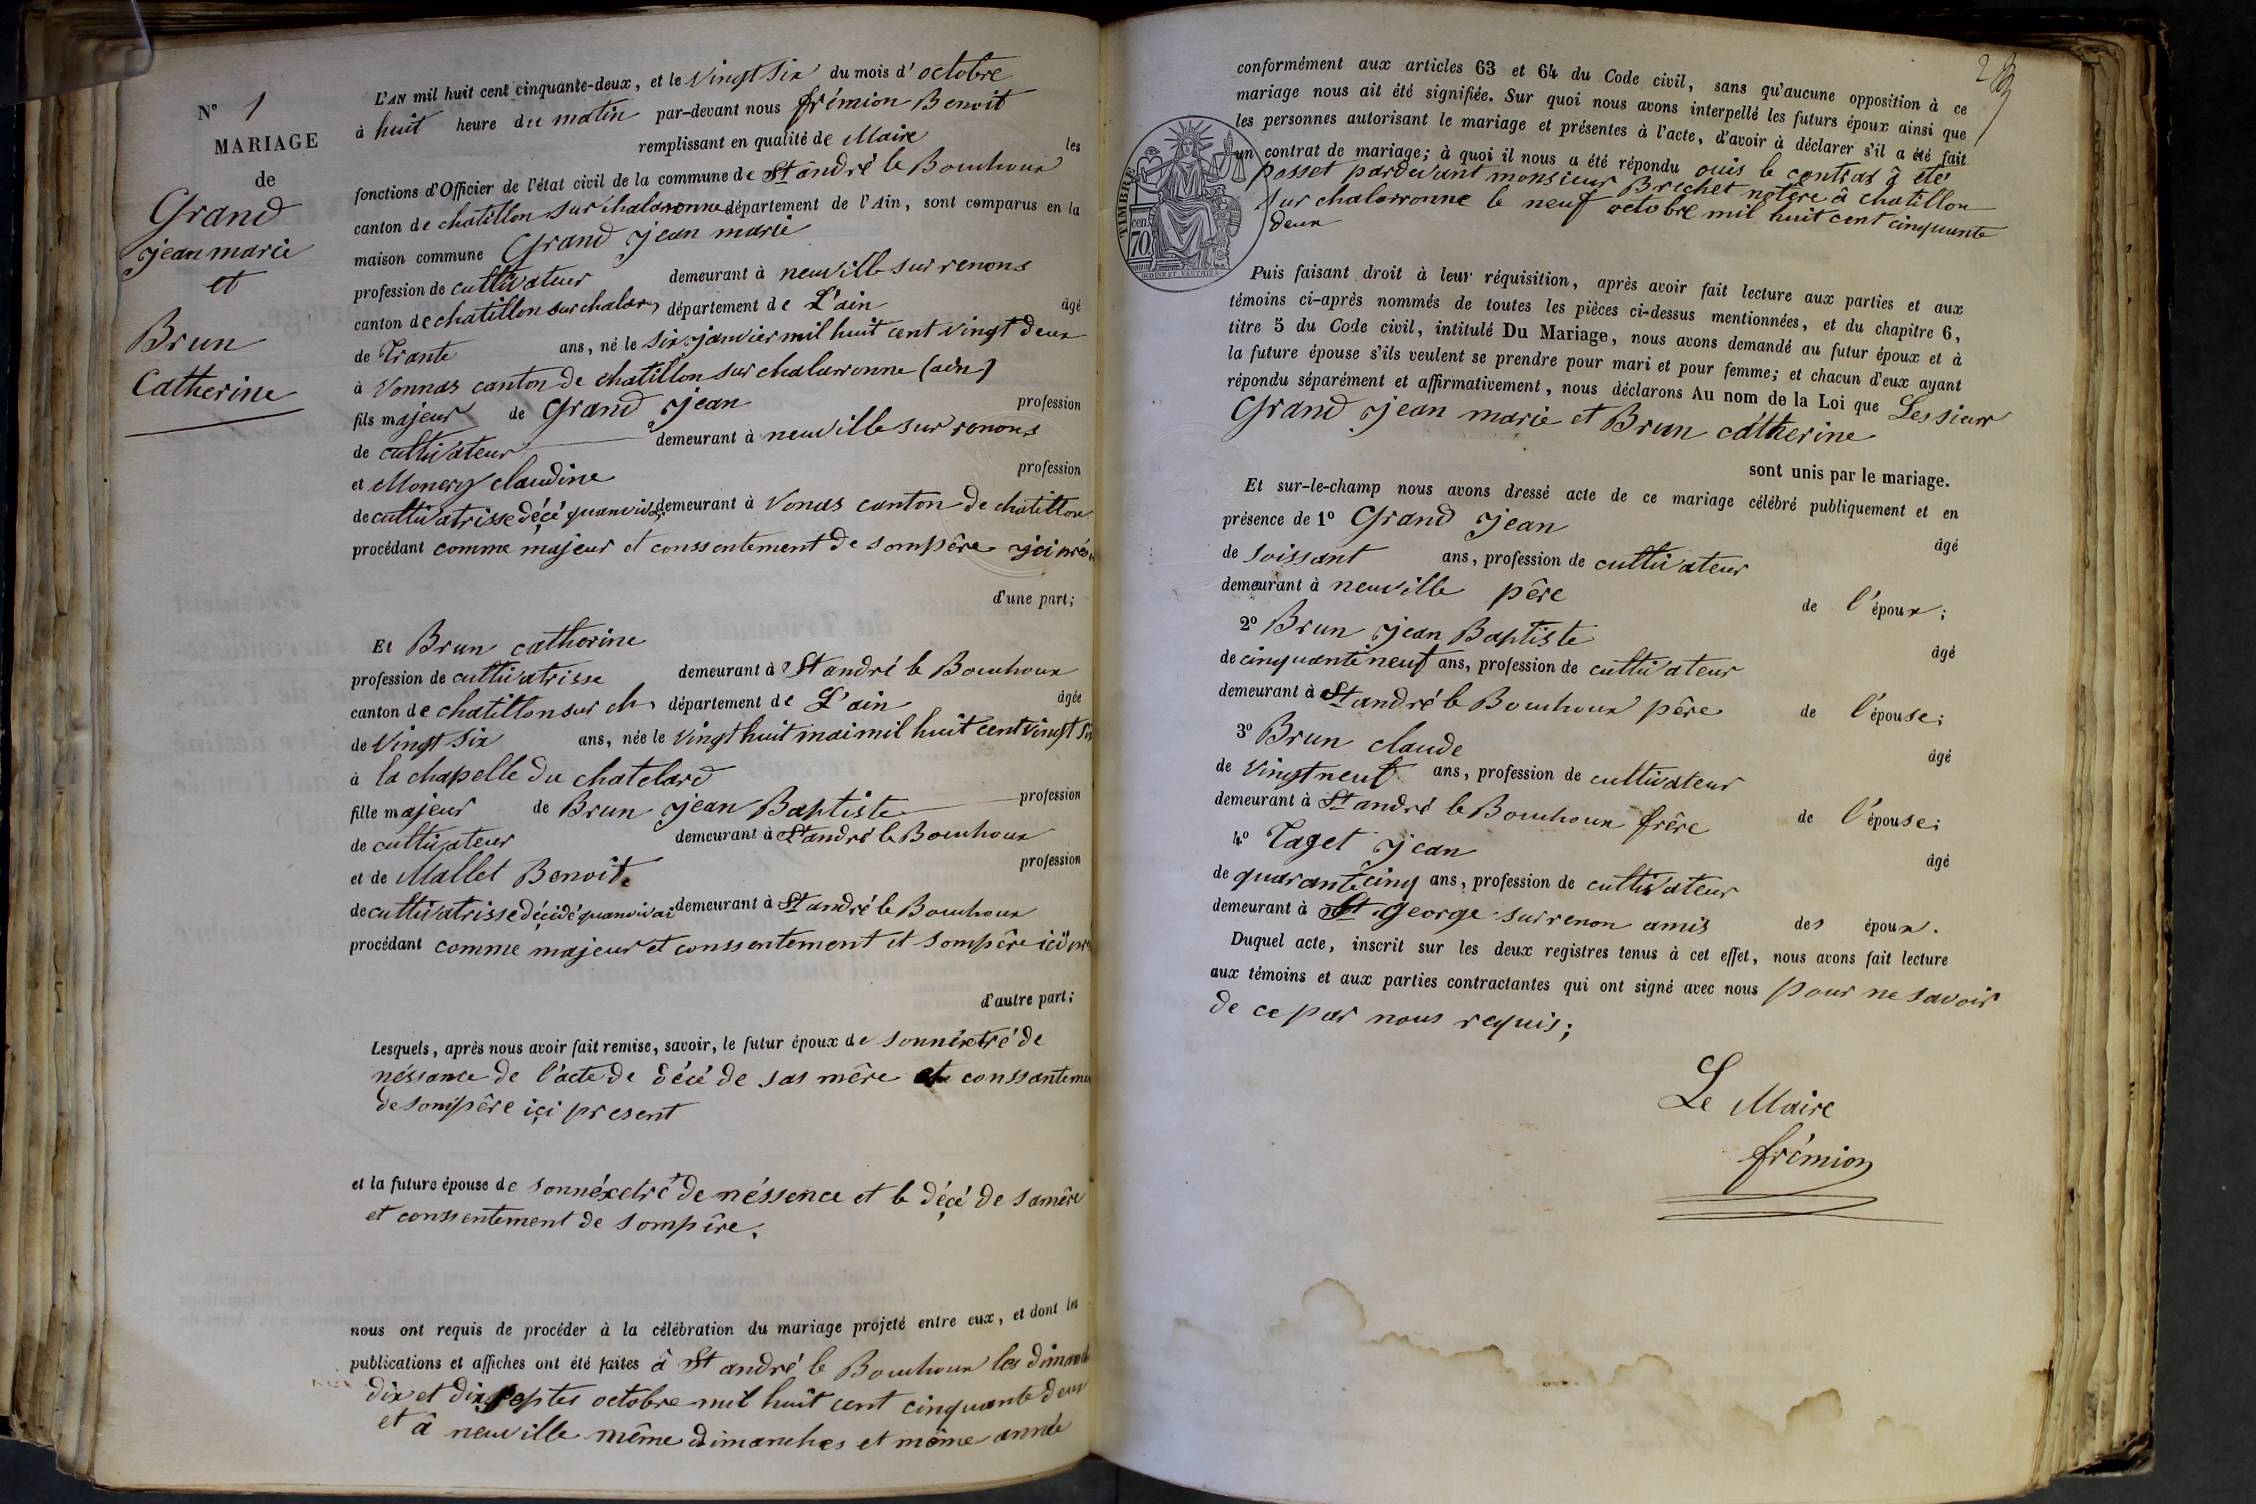 N° 1
MARIAGE
de
Grand
jean marie
et
Brun
Catherine
L'AN mil huit cent cinquante-deux, et le vingt six du mois d'octobre
à huit heure du matin par-devant nous frémion Benoit
remplissant en qualité de Maire les
fonctions d'Officier de l'état civil de la commune de St andré le Bouchoux
canton de chatillon sur chalaronne département de l'Ain, sont comparus en la
maison commune Grand jean marie
profession de cultivateur demeurant à neuville sur renons
canton de chatillon sur chalar département de L'ain âgé
de Trante ans, né le six janvier mil huit cent vingt deux
à Vonnas canton de chatillon sur chalarronne (ain)
fils majeur de Grand jean profession
de cultivateur demeurant à neuville sur renons
et Monery claudine profession
de cultivatrisse déçé quanvivai demeurant à Vonas canton de chatillon
procédant comme majeur et conssentement de sompêre içi prés
d'une part;
Et Brun catherine
profession de cultivatrisse demeurant à St andré le Bouchoux
canton de chatillon sur ch département de L'ain âgée
de vingt six ans, née le vingt huit mai mil huit cent vingt six
à la chapelle du chatelard
fille majeur de Brun jean Baptiste profession
de cultivateur demeurant à St andré le Bouchoux
et de Mallet Benoite profession
de cultivatrisse décidé quanvivai demeurant à St andré le Bouchoux
procédant comme majeur et conssentement et sompêre ici
d'autre part;
Lesquels, après nous avoir fait remise, savoir, le futur époux de sonnéxtré de
néssance de l'acte de décé de sas mêre et conssanteme
de sompêre içi present
et la future épouse de sonnéxetré de néssence et le déçé de samêre
et conssentement de sompêre.
nous ont requis de procéder à la célébration du mariage projeté entre eux, et dont les
publications et affiches ont été faites à St andré le Bouchoux les dimanch
dix et dix septes octobre mil huit cent cinquante deux
et â neuville même dimanches et même année
conformément aux articles 63 et 64 du Code civil, sans qu'aucune opposition à ce
mariage nous ait été signifiée. Sur quoi nous avons interpellé les futurs époux ainsi que
les personnes autorisant le mariage et présentes à l'acte, d'avoir à déclarer s'il a été fait
un contrat de mariage; à quoi il nous a été répondu ouis le contras à été
posset pardevant monsieur Brichet notêre â chatillon
sur chalarronne le neuf octobre mil huit cent cinquante
deux
TIMBRE
70 cen
Puis faisant droit à leur réquisition, après avoir fait lecture aux parties et aux
témoins ci-après nommés de toutes les pièces ci-dessus mentionnées, et du chapitre 6,
titre 5 du Code civil, intitulé Du Mariage, nous avons demandé au futur époux et à
la future épouse s'ils veulent se prendre pour mari et pour femme; et chacun d'eux ayant
répondu séparément et affirmativement, nous déclarons Au nom de la Loi que Les sieur
Grand jean marie et Brun cátherine
sont unis par le mariage.
Et sur-le-champ nous avons dressé acte de ce mariage célébré publiquement et en
présence de 1° Grand jean âgé
de soissant ans, profession de cultivateur
demeurant à neuville pêre de l'époux;
2° Brun jean Baptiste âgé
de cinquanti neuf ans, profession de cultivateur
demeurant à St andré le Bouchoux pêre de l'épouse;
3° Brun claude âgé
de vingt neuf ans, profession de cultivateur
demeurant à St andré le Bouchoux frêre de l'épouse;
4° Taget jean âgé
de quarante cinq ans, profession de cultivateur
demeurant à St george sur renon amis des époux.
Duquel acte, inscrit sur les deux registres tenus à cet effet, nous avons fait lecture
aux témoins et aux parties contractantes qui ont signé avec nous pour ne savoir
de ce par nous requis;
Le Maire
frémion